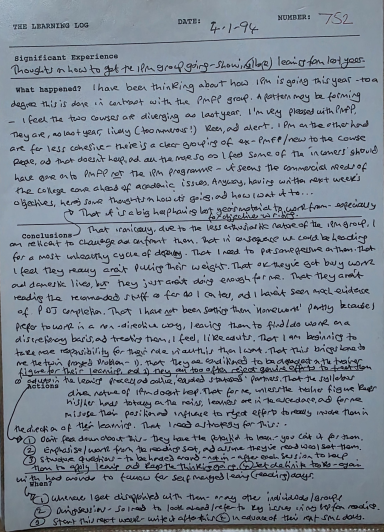 THE LEARNING LOG DATE: 4-1-94 NUMBER: 752
Significant Experience
Thoughts on how to get the IPM group going - showing (also) learning from last year.
What happened? I have been thinking about how IPM is going this year - to a
degree this is done in contrast with the PMFP group. A pattern may be forming
- I feel the two courses are diverging as last year. I'm very pleased with PMFP,
They are, as last year, lively (too numerous!) keen, and alert. IPM on the other hand
are far less cohesive - there is a clear grouping of ex-PMFP/new to the course
people, and that doesn't help, and all the more so as I feel some of the in comers should
have gone onto PMFP not the IPM programme - it seems the commercial needs of
the College come ahead of academic issues. Anyway, having written next week's
objectives, here's some thoughts on how it's going, and how I want it to...
That it is a big help having last year's material to work from - especially
for objective writing.
Conclusions That ironically, due to the less enthusiastic nature of the IPM group, I
am reticent to challenge and confront them. That in consequence we could be heading
for a most unhealthy cycle of That I need to put some pressure on them. That
I feel they really aren't pulling their weight. That OK they've got busy work
and domestic lives, but they just aren't doing enough for me. That they aren't
reading the recommended stuff as far as I can see, and I haven't seen much evidence
of completion. That I have not been setting them 'homework' partly because I
prefer to work in a non-directive way, leaving them to find/do work on a
discretionary basis, and treating them, I feel, like adults. That I am beginning to
take more responsibility for their role in activities than I want. That this brings home to
me the twin problem - 1) that they are conditioned to be dependent on the trainer
figure for their learning, and 2) they all too often reject genuine efforts to treat them
as adults in the learning process, as active, equal partners. That the syllabus
Actions
driven nature of IPM doesn't help. That for me, unless the trainer figure keeps
his/her hands totally on the reins, learners are in the ascendance, and for me
misuse their position and influence to reject efforts to really involve them in
the direction of their learning. That I need a strategy for this:-
① Don't feel down about this - they have the potential to learn - you can't for them.
② Emphasise work from the reading set, and assume they've read wot set them.
③ questions - to be handed around - after each session to help
them to apply learning and keep the thinking going. ④ Set definite tasks - again
with hard words to for self managed learning (reading) days.
When?
① Whenever I get disappointed with them - or any other individuals/groups
② session - so need to look ahead/refer to key issues in
③ Start this next week - write it after this ④ in advance of their next SML days.